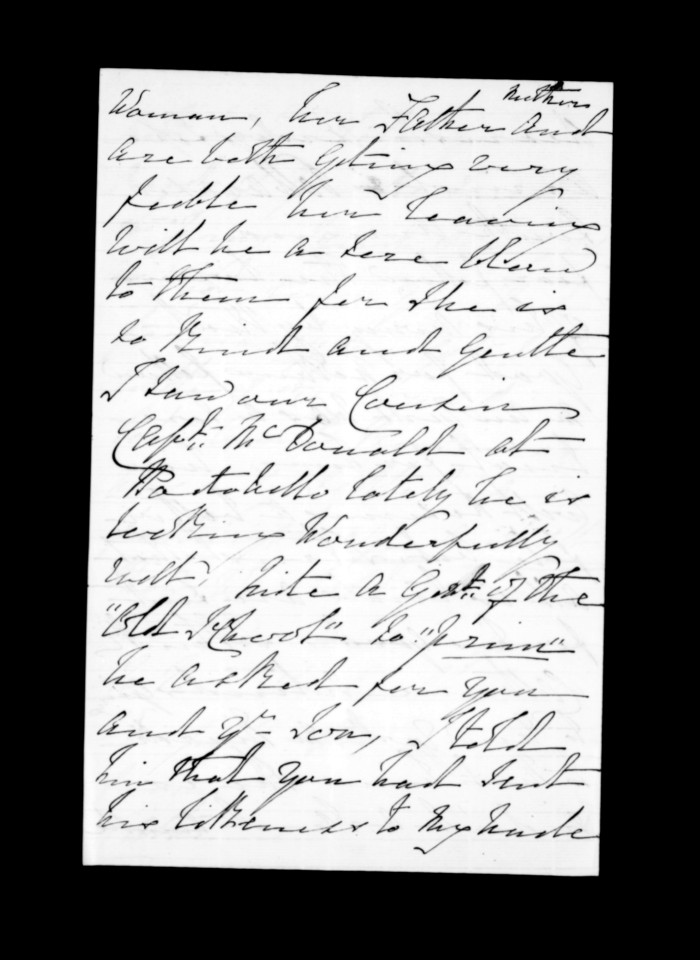 Woman, her Father and Mother
are both geting very
feeble her leaving
will be a sore blow
to them for she is
so kind and gentle
I saw our Cousin
Capt. McDonald at
Portobello lately he is
looking Wonderfully
well, quite a Gent. of the
"Old School" so "prim"
he asked for you
and yr Son, I told
him that you had sent
his likeness to my Uncle